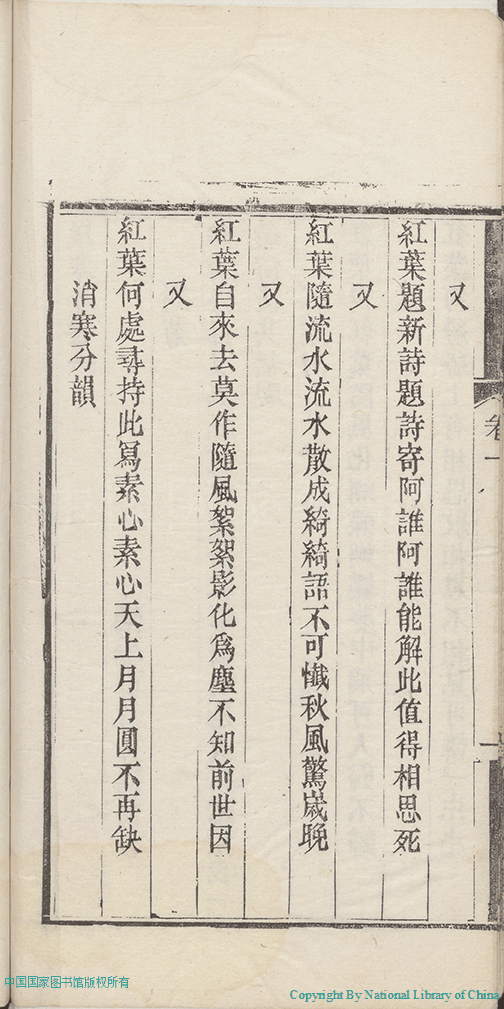 卷一
一
又
紅葉題新詩題詩寄阿誰阿誰能解此值得相思死
又
紅葉隨流水流水散成綺綺語不可懺秋風驚歲晚
又
紅葉自來去莫作隨風絮絮影化爲塵不知前世因
又
紅葉何處尋持此寫素心素心天上月月圓不再缺
消寒分韻
中国国家图书馆版权所有
Copyright By National Library of China